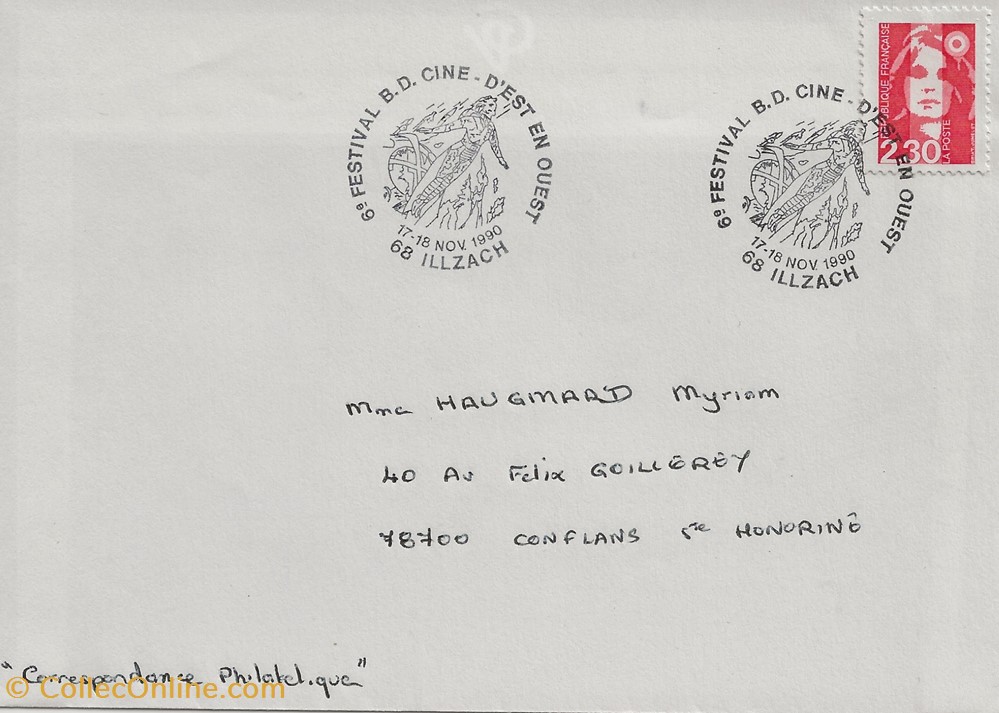 6e FESTIVAL B.D. CINE - D'EST EN OUEST
17-18 NOV. 1990
68 ILLZACH
6e FESTIVAL B.D. CINE - D'EST EN OUEST
17-18 NOV. 1990
68 ILLZACH
RÉPUBLIQUE FRANÇAISE
2,30
LA POSTE
Mme HAUGMARD Myriam
40 Av Félix GOILLEREY
78700 CONFLANS Ste HONORINE
"Correspondance Philatélique"
© CollecOnline.com